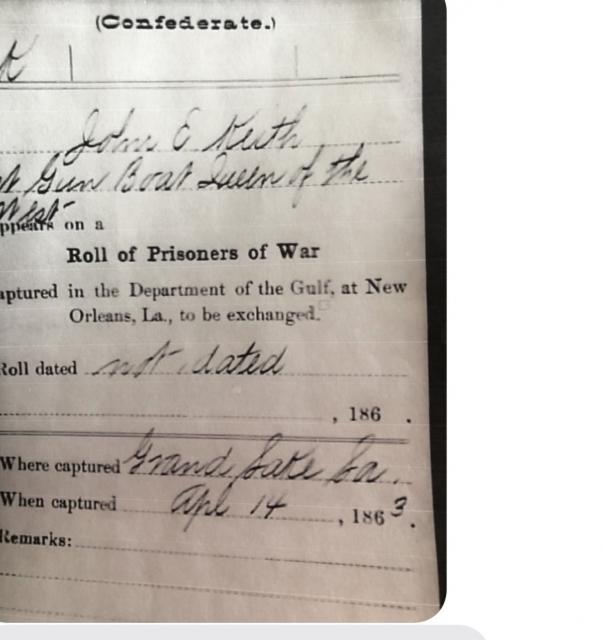 (Confederate.)
John E Keith
Gun Boat Queen of the
West
appears on a
Roll of Prisoners of War
aptured in the Department of the Gulf, at New
Orleans, La., to be exchanged.
Roll dated not dated
, 186 .
Where captured Grand Lake La.
When captured Apl 14, 1863.
Remarks: